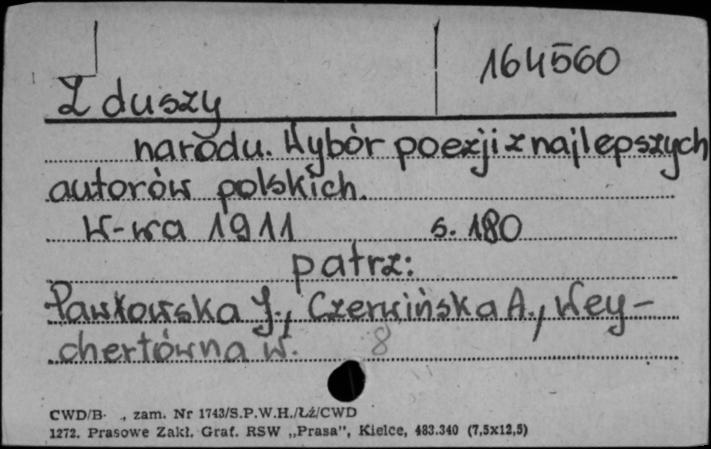 164560
Z duszy
narodu. Wybór poezji z najlepszych
autorów polskich.
W-wa 1911 s. 180
patrz:
Pawłowska J., Czerwińska A., Wey-
chertówna W. 8
CWD/B- ., zam. Nr 1743/S.P.W.H./Łź/CWD
1272. Prasowe Zakł. Graf. RSW „Prasa", Kielce, 483.340 (7,5x12,5)